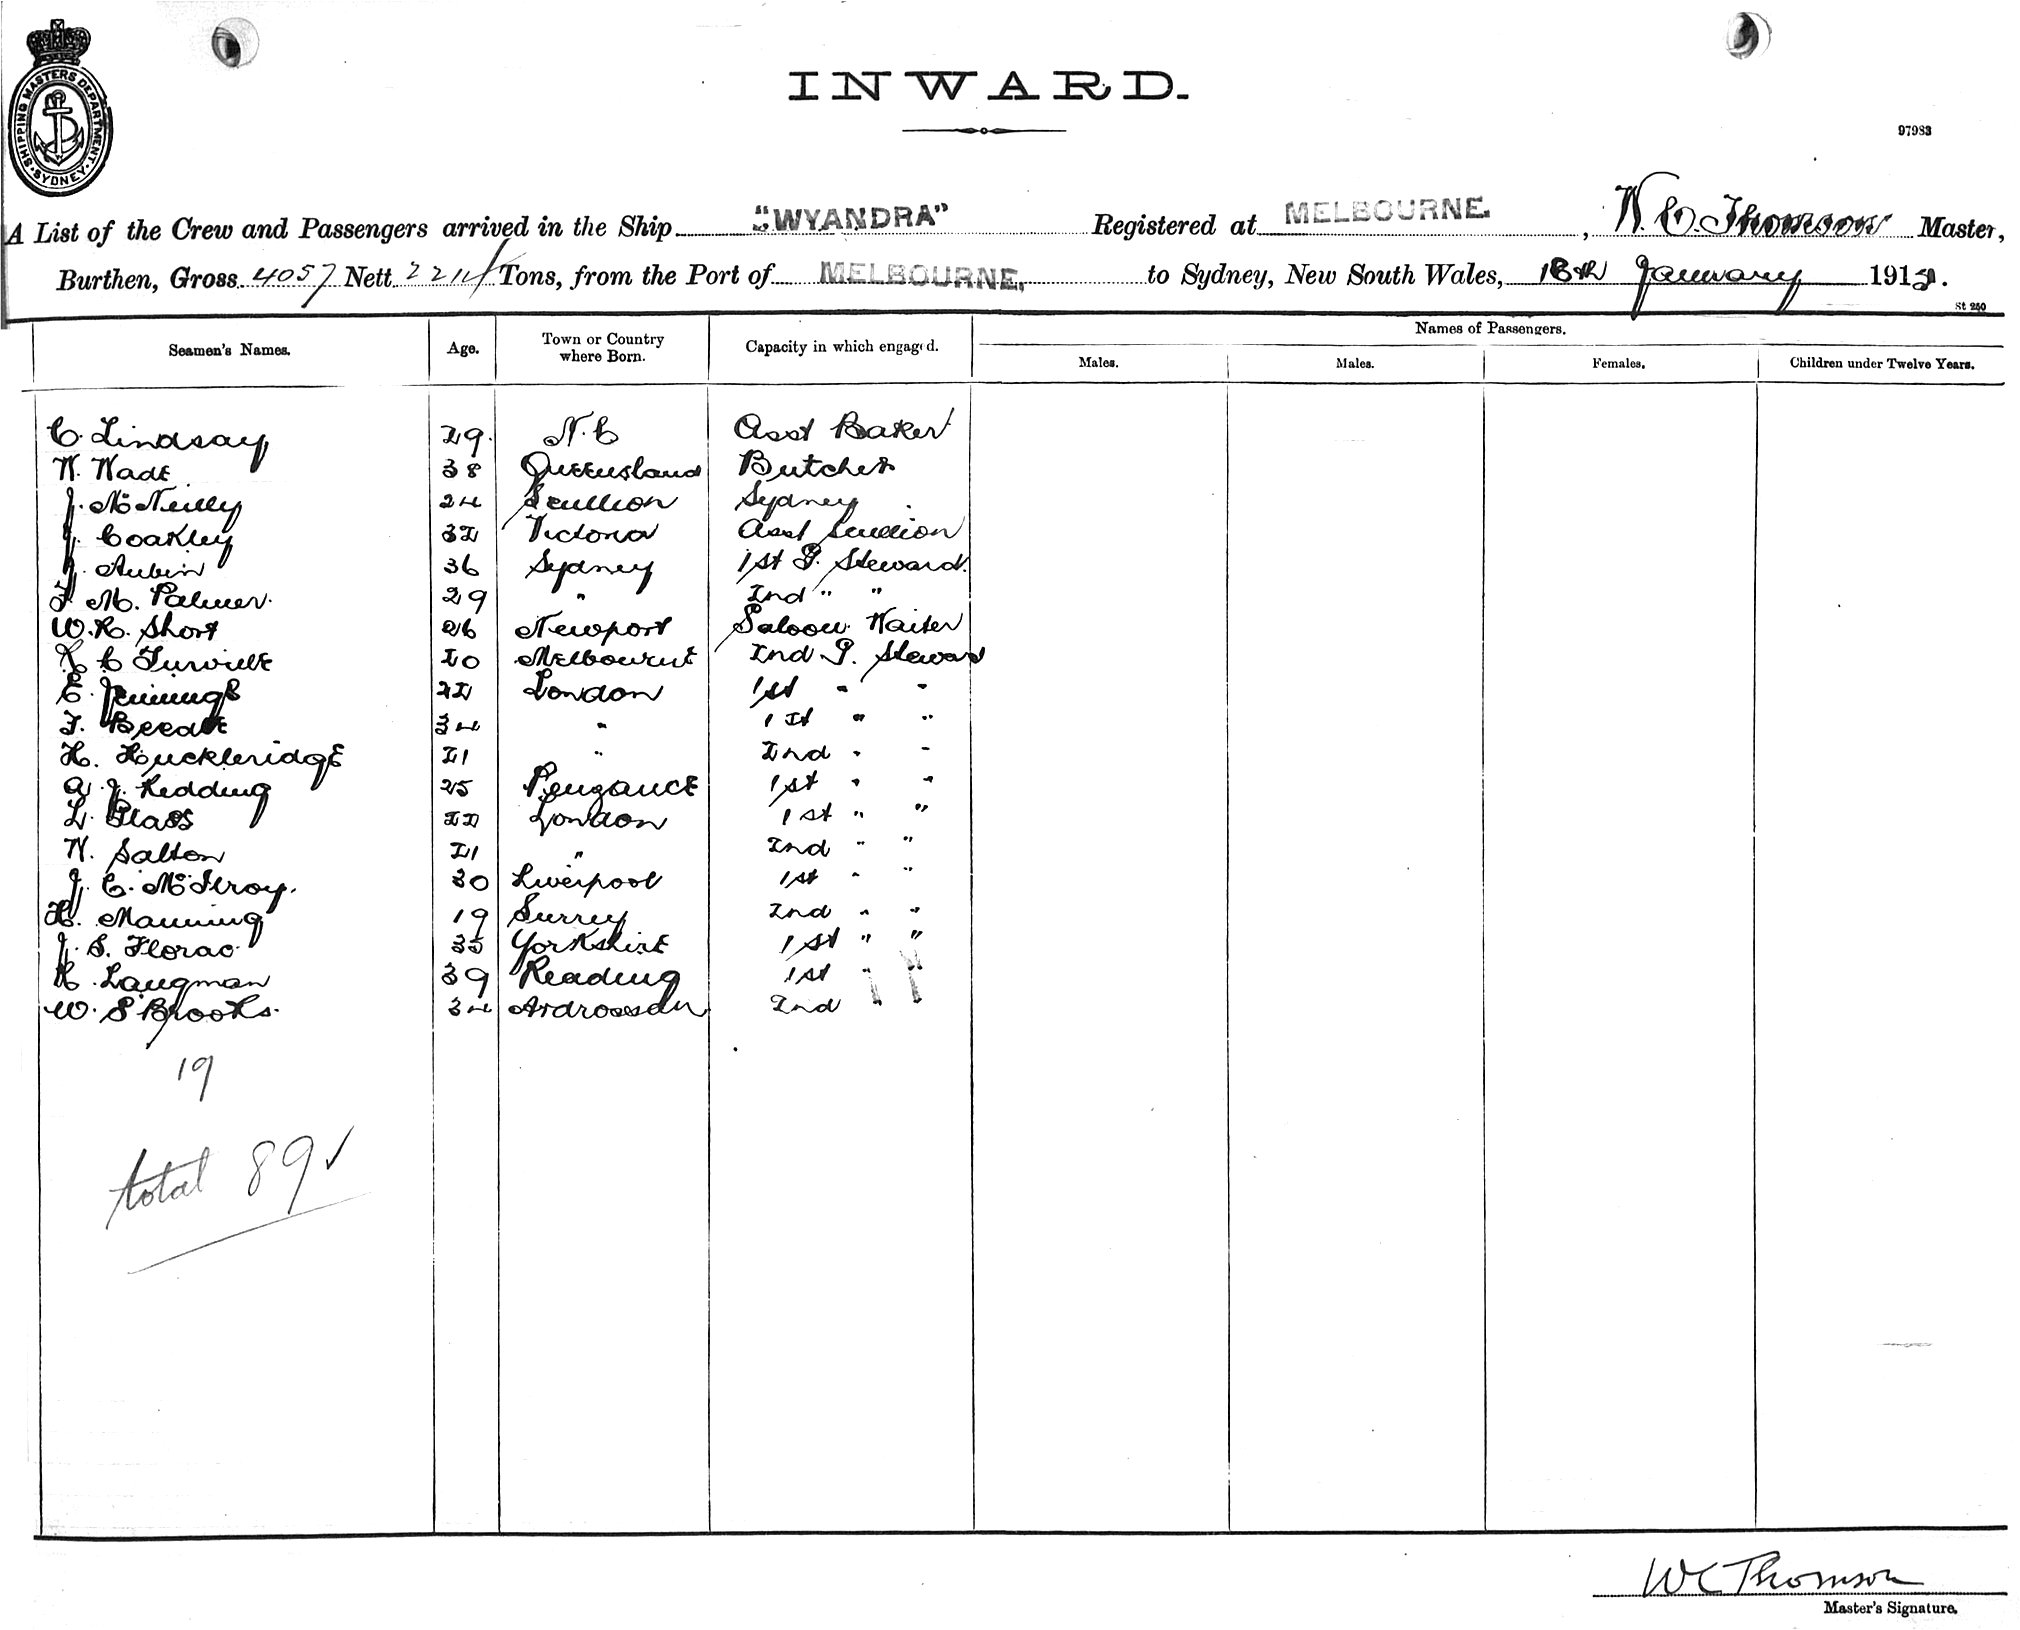 SHIPPING MASTERS DEPARTMENT · SYDNEY ·
INWARD.
97983
A List of the Crew and Passengers arrived in the Ship "WYANDRA" Registered at MELBOURNE. , W. C. Thomson Master,
Burthen, Gross 4057 Nett Tons, from the Port of MELBOURNE. to Sydney, New South Wales, 18th January 191
St 250
Seamen's Names. Age. Town or Country where Born. Capacity in which engaged. Names of Passengers.
Males. Males. Females. Children under Twelve Years.
C. Lindsay 29. N. C Asst Baker
W. Wade 38 Queensland Butcher
J. McNeilly 24 Scullion Sydney
J. Coakley 32 Victoria Asst Scullion
J. Aubin 36 Sydney 1st G. Steward.
F. M. Palmer. 29 " 2nd " "
W. R. Short 26 Newport Saloon Waiter
C Turville 20 Melbourne 2nd G. Steward
E. Jennings 22 London 1st " "
F. Beedle 34 " 1st " "
H. Huckleridge 21 " 2nd " "
A. J. Redding 25 Penzance 1st " "
L. Glass 22 London 1st " "
W. Salton 21 " 2nd " "
J. C. McIlroy. 30 Liverpool 1st " "
H. Manning 19 Surrey 2nd " "
J. S. Florac 35 Yorkshire 1st " "
H. Langman 39 Reading 1st "
W. S Brooks. 34 Ardrossan 2nd
19
total 89 ✓
WC Thomson
Master's Signature.